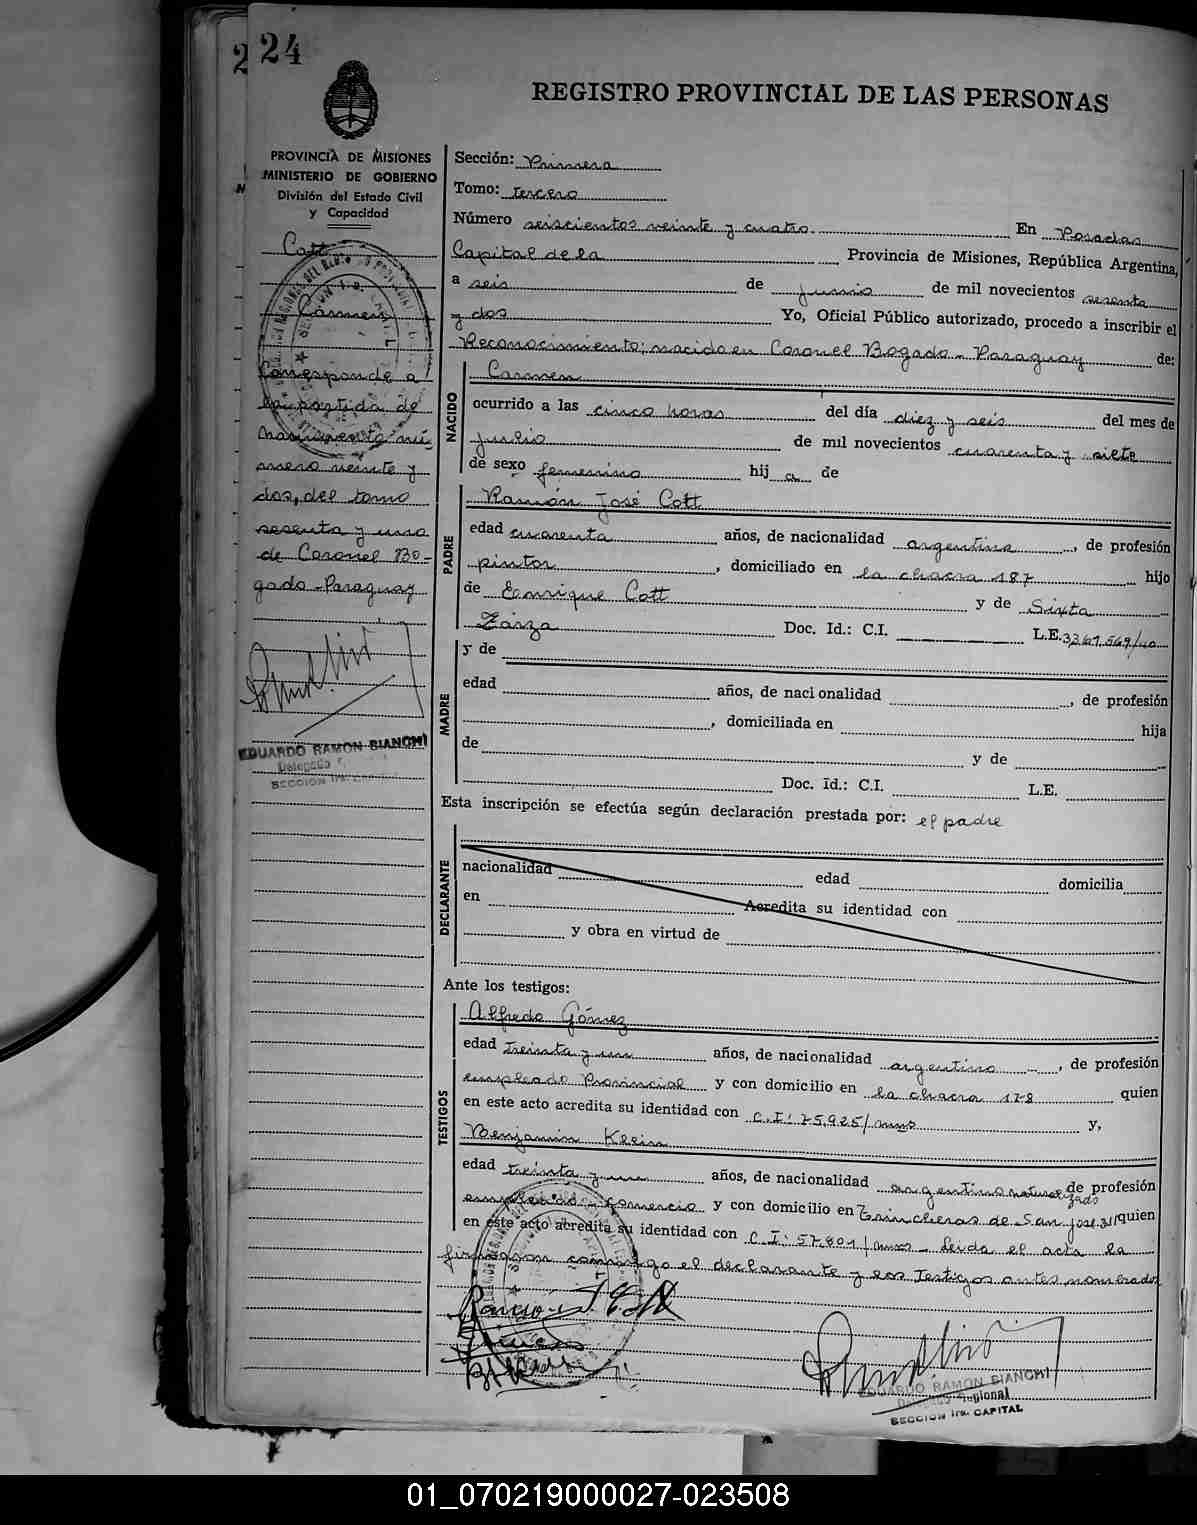 24
REGISTRO PROVINCIAL DE LAS PERSONAS
PROVINCIA DE MISIONES
MINISTERIO DE GOBIERNO
División del Estado Civil
y Capacidad
Cott
Carmen
Corresponde a
la partida de
nacimiento nú-
mero veinte y
dos, del tomo
sesenta y uno
de Coronel Bo-
gado-Paraguay
EDUARDO RAMON BIANCHI
Delegado
SECCION 1ra. CAPITAL
Sección: Primera
Tomo: tercero
Número seiscientos veinte y cuatro. En Posadas
Capital de la Provincia de Misiones, República Argentina,
a seis de Junio de mil novecientos sesenta
y dos Yo, Oficial Público autorizado, procedo a inscribir el
Reconocimiento; nacido en Coronel Bogado - Paraguay de:
NACIDO
Carmen
ocurrido a las cinco horas del día diez y seis del mes de
Julio de mil novecientos cuarenta y siete
de sexo femenino hij a de
PADRE
Ramón José Cott
edad cuarenta años, de nacionalidad argentina, de profesión
pintor, domiciliado en la chacra 187 hijo
de Enrique Cott y de Sixta
Zárza Doc. Id.: C.I. L.E. 3361.569/40
MADRE
y de
edad años, de nacionalidad , de profesión
, domiciliada en hija
de y de
Doc. Id.: C.I. L.E.
Esta inscripción se efectúa según declaración prestada por: el padre
DECLARANTE
nacionalidad edad domicilia
en Acredita su identidad con
y obra en virtud de
Ante los testigos:
TESTIGOS
Alfredo Gómez
edad treinta y un años, de nacionalidad argentino, de profesión
empleado Provincial y con domicilio en la chacra 178 quien
en este acto acredita su identidad con C.I: 75.925/mnes y,
Benjamin Klein
edad treinta y un años, de nacionalidad argentino naturalizado de profesión
empleado comercio y con domicilio en Trincheras de San José 311 quien
en este acto acredita su identidad con C.I: 57.801/mnes - Leida el acta la
firmaron conmigo el declarante y los Testigos antes nombrados
EDUARDO RAMON BIANCHI
Delegado Regional
SECCION 1ra. CAPITAL
01_070219000027-023508